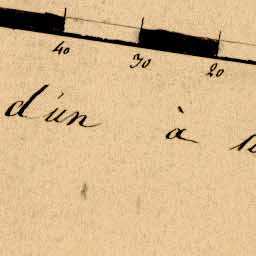 40 30 20
d'un à